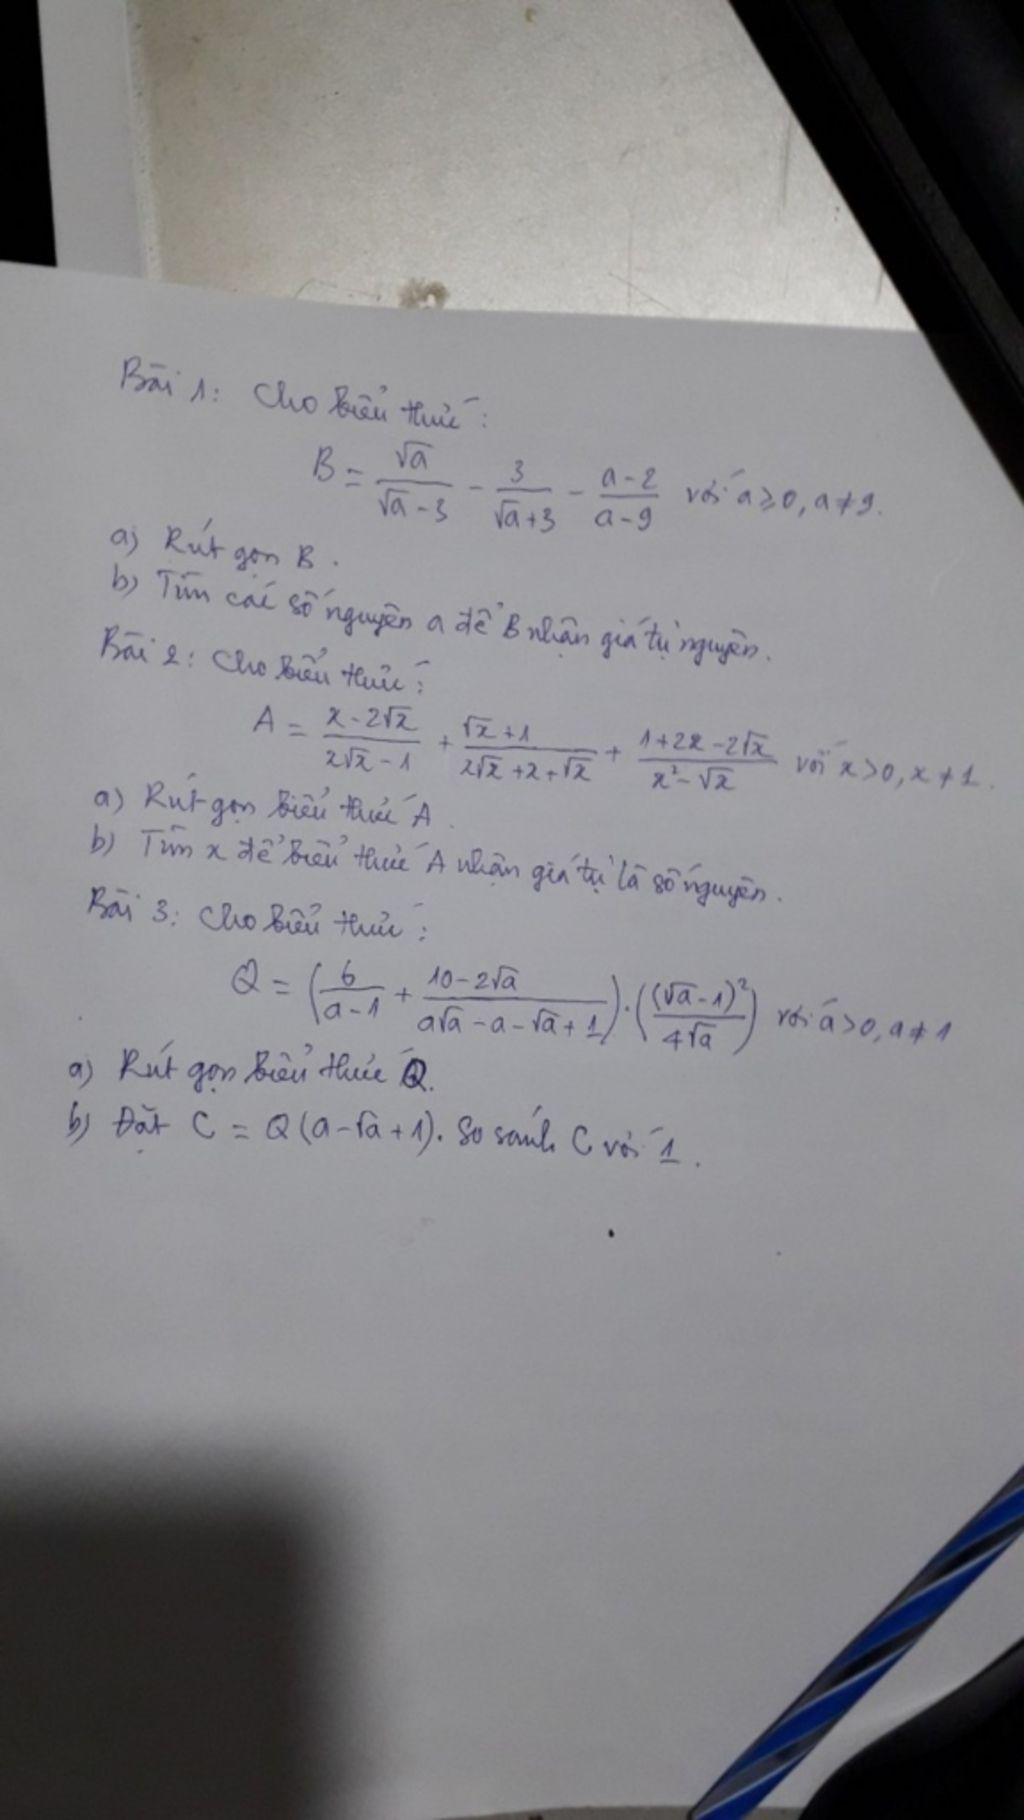 Bài 1: Cho biểu thức:
B = √a/(√a-3) - 3/(√a+3) - (a-2)/(a-9) với a ≥ 0, a ≠ 9.
a) Rút gọn B.
b) Tìm các số nguyên a để B nhận giá trị nguyên.
Bài 2: Cho biểu thức:
A = (x-2√x)/(x√x-1) + (√x+1)/(x√x+x+√x) + (1+2x-2√x)/(x²-√x) với x > 0, x ≠ 1.
a) Rút gọn biểu thức A.
b) Tìm x để biểu thức A nhận giá trị là số nguyên.
Bài 3: Cho biểu thức:
Q = (6/(a-1) + (10-2√a)/(a√a-a-√a+1)).((√a-1)²/(4√a)) với a > 0, a ≠ 1
a) Rút gọn biểu thức Q.
b) Đặt C = Q(a-√a+1). So sánh C với 1.